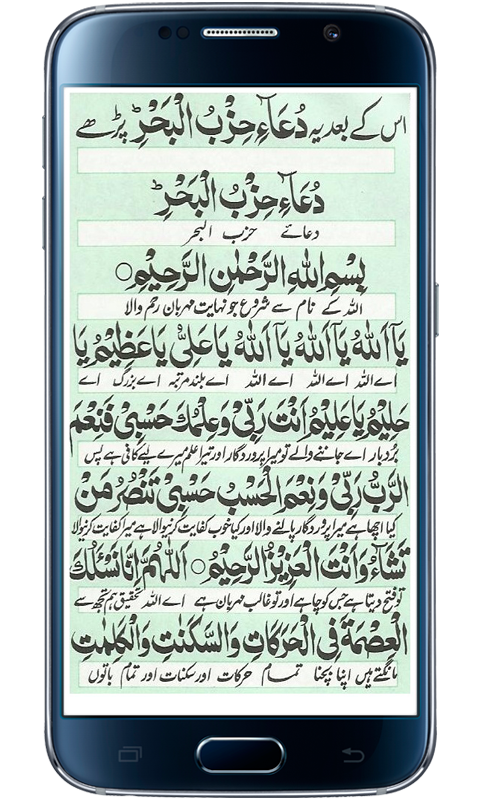 اس کے بعد یہ دُعَاءِ حِزْبُ الْبَحْرْ پڑھے
دُعَاءِ حِزْبُ الْبَحْرْ
دعائے حزب البحر
بِسْمِ اللّٰهِ الرَّحْمٰنِ الرَّحِيْمِ○
اللہ کے نام سے شروع جو نہایت مہربان رحم والا
يَآ اَللّٰهُ يَآ اَللّٰهُ يَآ اَللّٰهُ يَا عَلِيُّ يَا عَظِيْمُ يَا
اے اللہ اے اللہ اے اللہ اے بلند مرتبہ اے بزرگ اے
حَلِيْمُ يَا عَلِيْمُ اَنْتَ رَبِّيْ وَعِلْمُكَ حَسْبِيْ فَنِعْمَ
بردبار اے جاننے والے تو میرا پروردگار اور تیرا علم میرے لیے کافی ہے پس
الرَّبُّ رَبِّيْ وَنِعْمَ الْحَسْبُ حَسْبِيْ تَنْصُرُ مَنْ
کیا اچھا ہے میرا پروردگار پالنے والا اور کیا خوب کفایت کرنیوالا ہے میرا کفایت کرنیوالا
تَشَآءُ وَاَنْتَ الْعَزِيْزُ الرَّحِيْمُ○ اَللّٰهُمَّ اِنَّا نَسْئَلُكَ
تو فتح دیتا ہے جس کو چاہے اور تو غالب مہربان ہے اے اللہ تحقیق ہم تجھ سے
الْعِصْمَةَ فِي الْحَرَكَاتِ وَالسَّكَنٰتِ وَالْكَلِمٰتِ
مانگتے ہیں اپنا بچنا تمام حرکات اور سکنات اور تمام باتوں